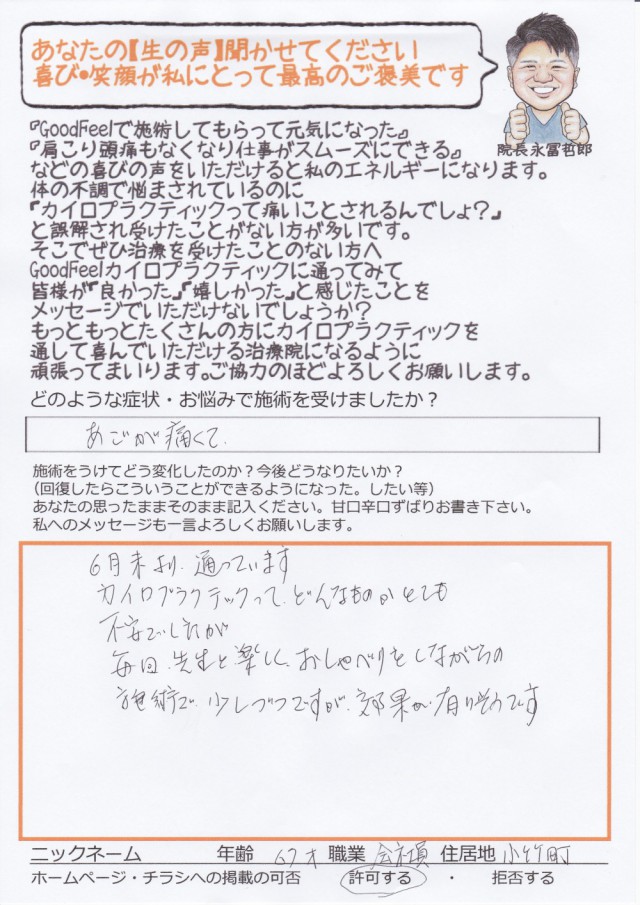 あなたの【生の声】聞かせてください
喜び・笑顔が私にとって最高のご褒美です
院長 永冨哲郎
『GoodFeelで施術してもらって元気になった』
『肩こり頭痛もなくなり仕事がスムーズにできる』
などの喜びの声をいただけると私のエネルギーになります。
体の不調で悩まされているのに
「カイロプラクティックって痛いことされるんでしょ?」
と誤解され受けたことがない方が多いです。
そこでぜひ治療を受けたことのない方へ
GoodFeelカイロプラクティックに通ってみて
皆様が「良かった」「嬉しかった」と感じたことを
メッセージでいただけないでしょうか?
もっともっとたくさんの方にカイロプラクティックを
通して喜んでいただける治療院になるように
頑張ってまいります。ご協力のほどよろしくお願いします。
どのような症状・お悩みで施術を受けましたか?
あごが痛くて、
施術をうけてどう変化したのか?今後どうなりたいか?
(回復したらこういうことができるようになった。したい等)
あなたの思ったままそのまま記入ください。甘口辛口ずばりお書き下さい。
私へのメッセージも一言よろしくお願いします。
6月末より、通っています
カイロプラクテックって、どんなものかとても
不安でしたが
毎回、先生と楽しく、おしゃべりをしながらの
施術で、少しづつですが、効果が、有りそうです
ニックネーム 年齢 67才 職業 会社員 住居地 小竹町
ホームページ・チラシへの掲載の可否 許可する ・ 拒否する